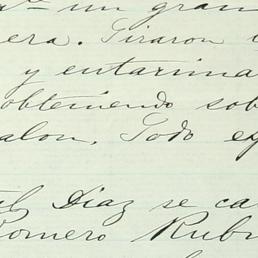 un gran
era. Tiraron
y entarima
obteniendo sob
alon. Todo
Diaz se ca
Romero Rub